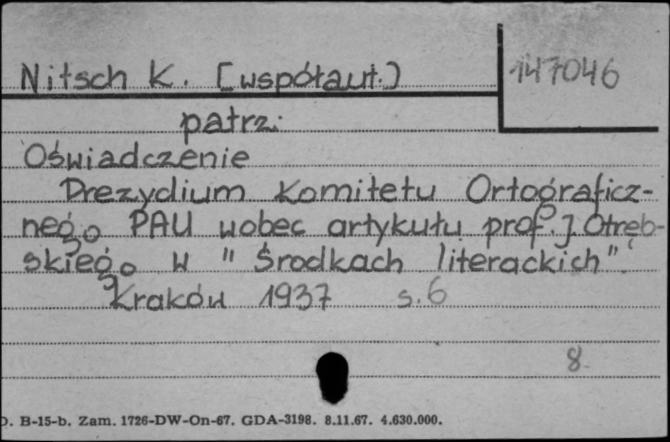 Nitsch K. [współaut.] 147046
patrz:
Oświadczenie
Prezydium Komitetu Ortograficz-
nego PAU wobec artykułu prof. J. Otręb-
skiego w "Środkach literackich".
Kraków 1937 s. 6
8.
D. B-15-b. Zam. 1726-DW-On-67. GDA-3198. 8.11.67. 4.630.000.